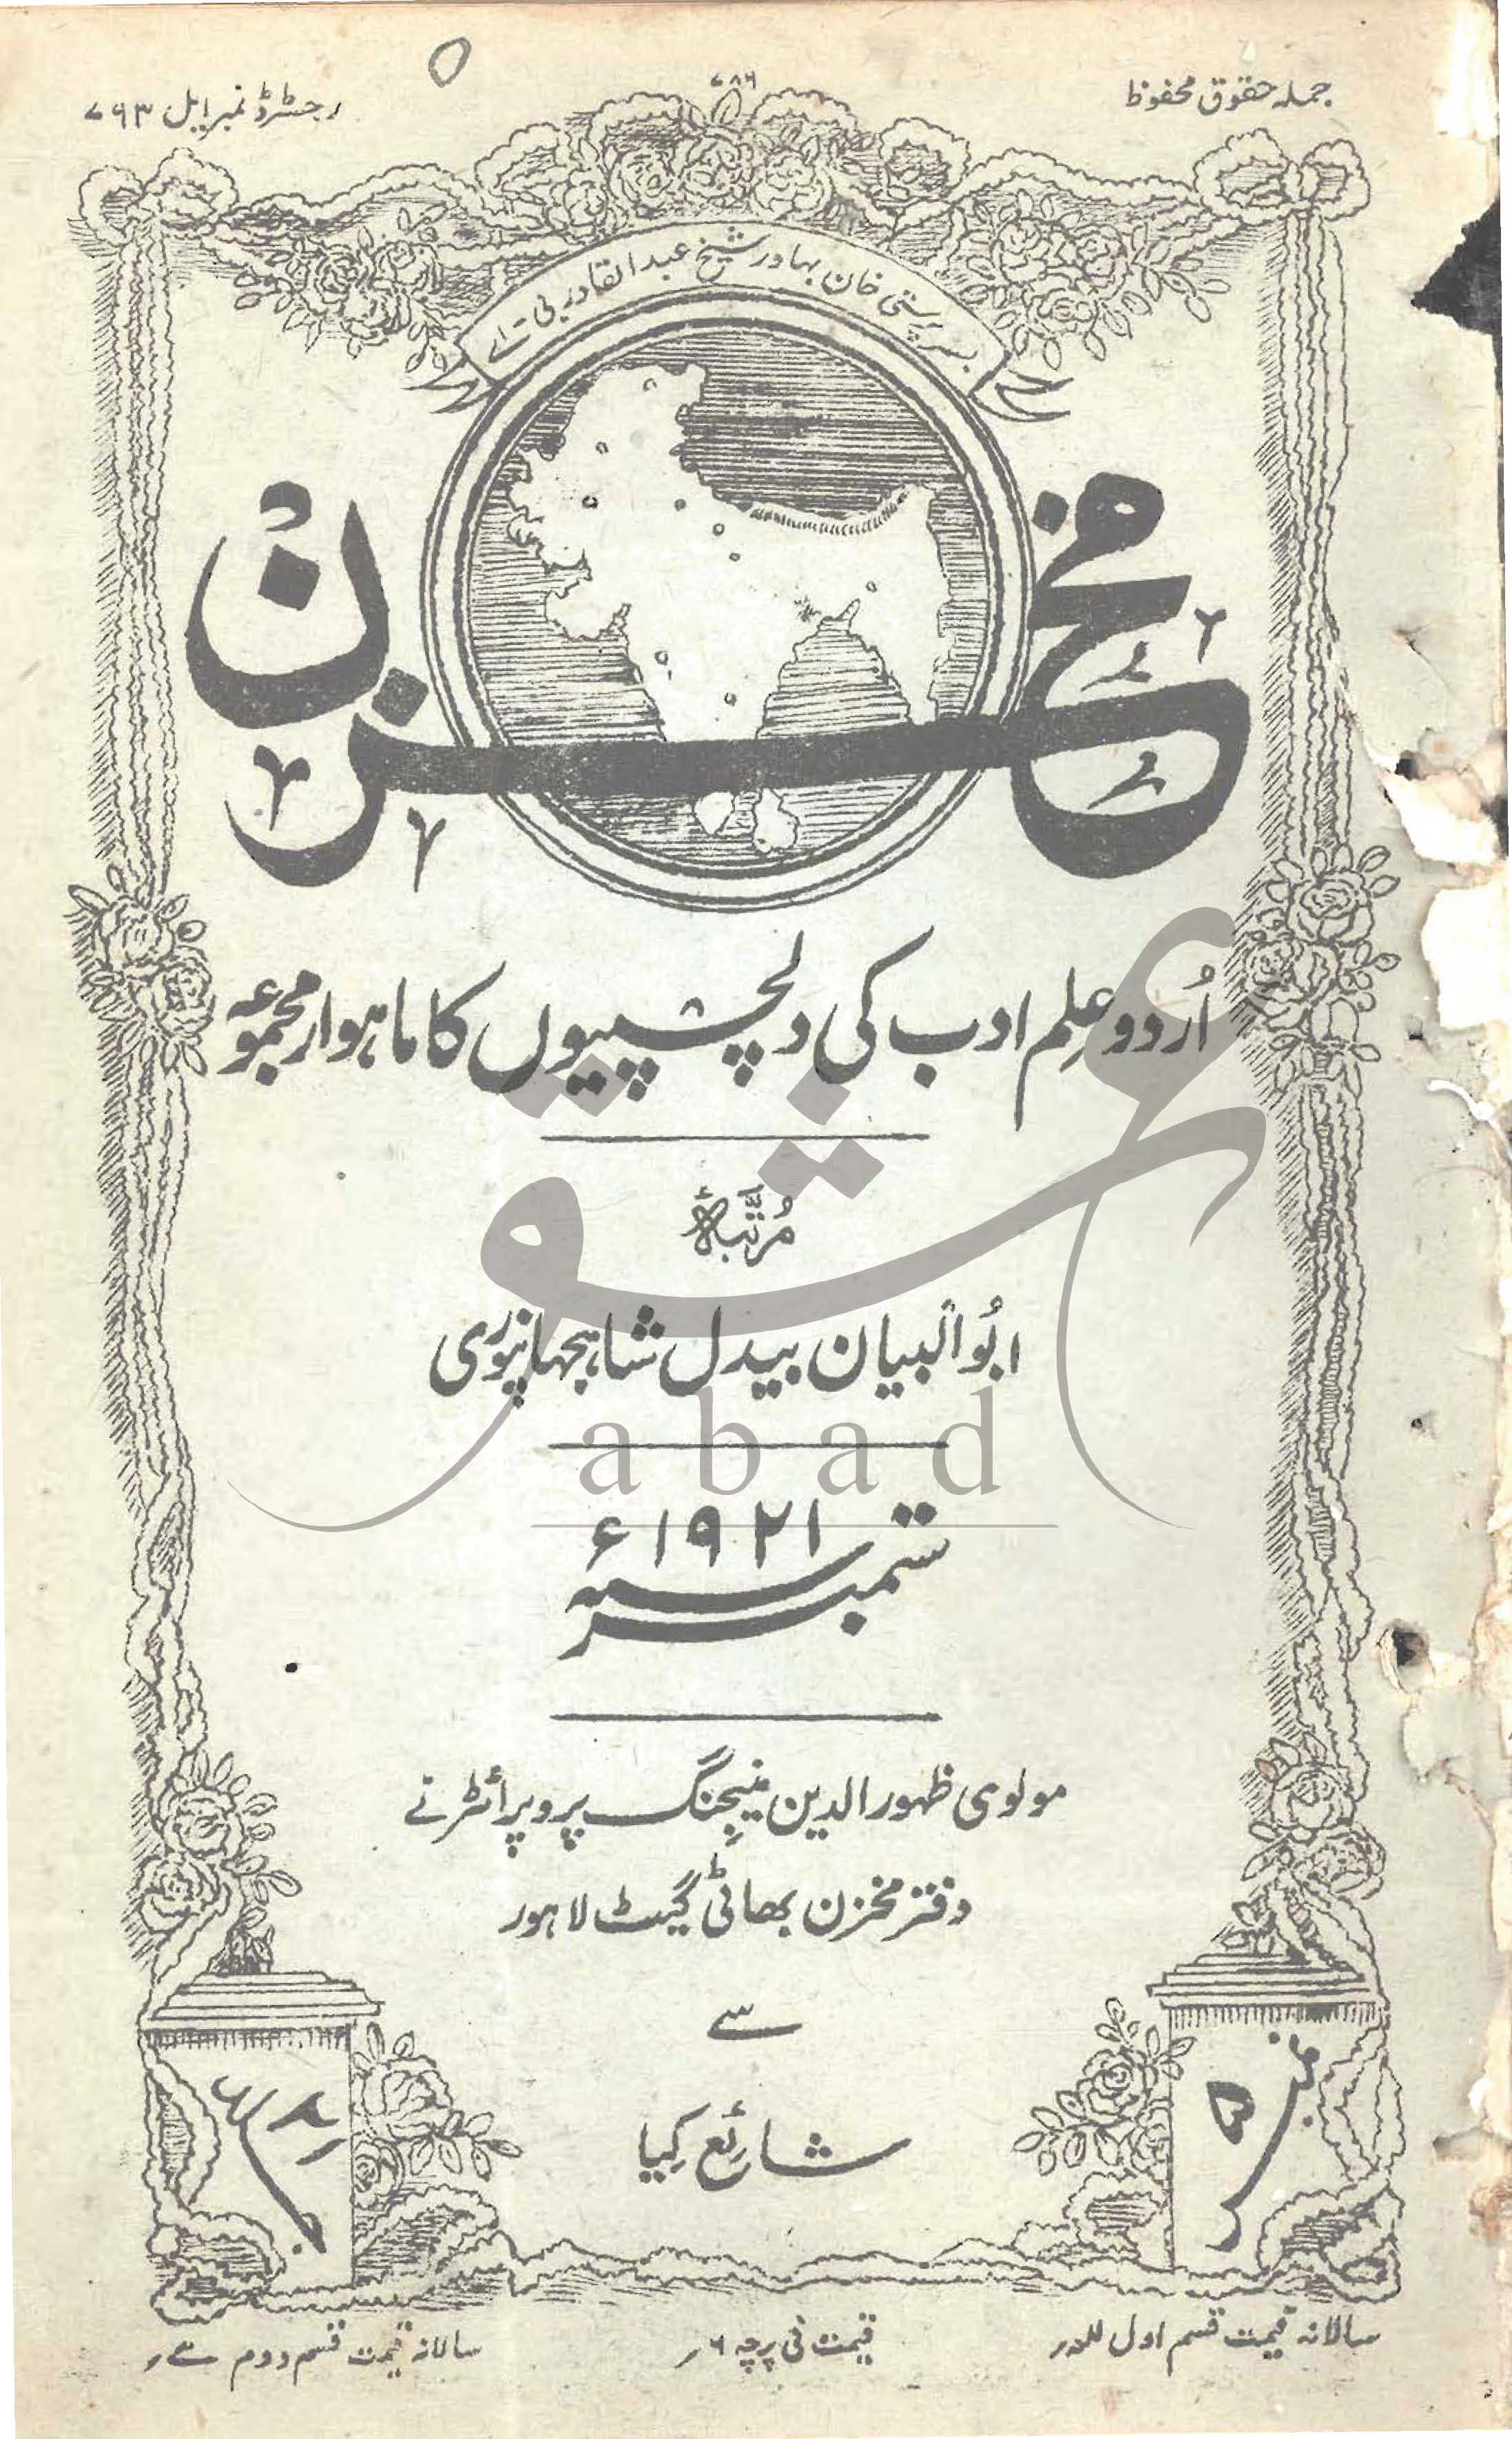 جملہ حقوق محفوظ
۷۸۶
رجسٹرڈ نمبر ایل ۷۶۳
بسرپرستی خان بہادر شیخ عبدالقادر بی اے
مخزن
اُردو علِم ادب کی دلچسپیوں کا ماہوار مجموعہ
مُرتَّبہٗ
ابُوالبیان بیدل شاہجہانپوری
ستمبر ۱۹۲۱ء
مولوی ظہورالدین مینجنگ پروپرائٹر نے
دفتر مخزن بھاٹی گیٹ لاہور
سے
شائع کِیا
نمبر ۵
جلد
سالانہ قیمت قسم اول
قیمت فی پرچہ ۶ر
سالانہ قیمت قسم دوم
عشق
abad